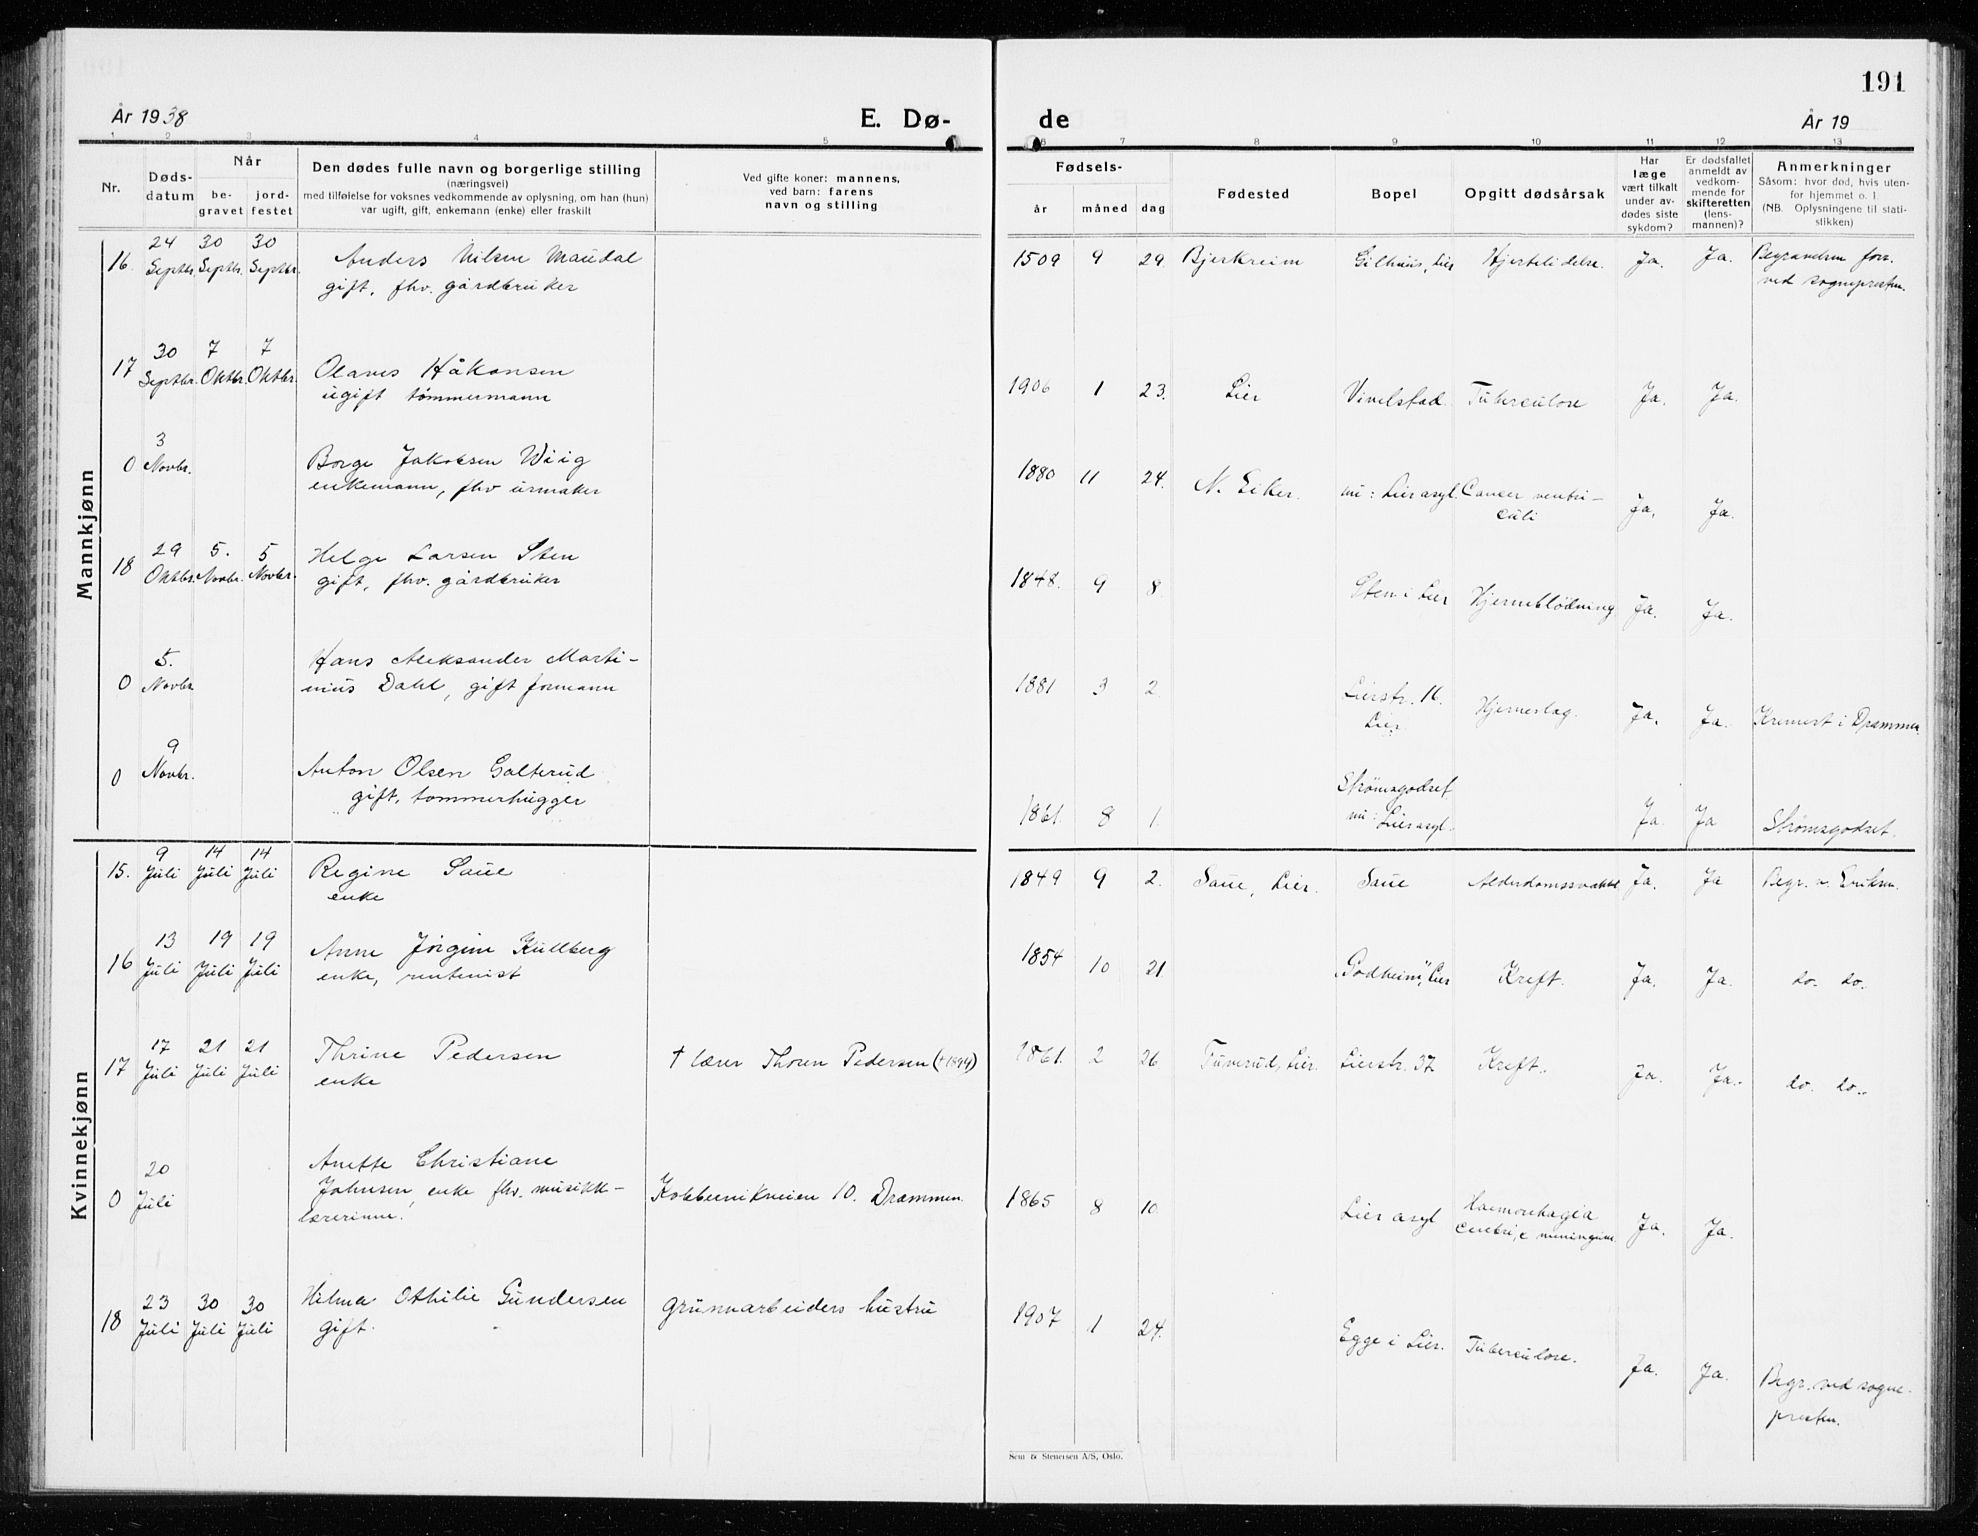 191
År 1938 E. Dø- de År 19
1 2 3 4 5 6 7 8 9 10 11 12 13
Nr. Døds-datum Når be-gravet jord-festet
Den dødes fulle navn og borgerlige stilling
(næringsvei)
med tilføielse for voksnes vedkommende av oplysning, om han (hun)
var ugift, gift, enkemann (enke) eller fraskilt
Ved gifte koner: mannens,
ved barn: farens
navn og stilling
Fødsels- år måned dag
Fødested
Bopel
Opgitt dødsårsak
Har læge vært tilkalt under av-dødes siste sykdom?
Er dødsfallet anmeldt av vedkom-mende for skifteretten (lens-mannen)?
Anmerkninger
Såsom: hvor død, hvis uten-
for hjemmet o. l
(NB. Oplysningene til stati-
stikken)
Mannkjønn
16. 24 Septbr. 30 Septbr. 30 Septbr. Anders Nilsen Maudal
gift, fhv. gårdbruker
1509 9 29. Bjerkreim Gilhus, Lier Hjertelidelse. Ja. Ja. Begravelsen forr.
ved sognepresten.
17 30 Septbr. 7 Oktbr. 7 Oktbr. Olaves Håkonsen
ugift tømmermann
1906 1 23. Lier Vivelstad. Tuberculose Ja. Ja.
0 3 Novbr. Borge Jakobsen Wiig
enkemann, fhv urmaker
1880 11 24. N. Eiker. nu: Lier asyl. Cancer ventri-
culi Ja. Ja.
18 29 Oktbr. 5. Novbr. 5 Novbr. Helge Larsen Sten
gift, fhv. gårdbruker
1848. 9 8. Sten i Lier Hjerneblødning Ja. Ja.
0 5. Novbr. Hans Aleksander Marti-
nius Dahl, gift formann
1881 3 2 Lierstr. 16.
Lier. Hjerneslag. Ja. Ja. Kremert i Drammen
0 9 Novbr. Anton Olsen Golterud
gift, tømmerhugger
1861. 8 1. Strømsgodset
nu: Lier asyl. Ja. Ja Strømsgodset.
Kvinnekjønn
15. 9 Juli 14 Juli 14 Juli Regine Saue
enke
1849 9 2. Saue, Lier. Saue Alderdomssvakhet Ja. Ja Begr. v. Eriksen.
16 13 Juli 19 Juli 19 Juli Anne Jørgine Kullberg
enke, rentenist
1854 10 21. "Godheim", Lier Kreft. Ja. Ja. do. do.
17 17 Juli 21 Juli 21 Juli Thrine Pedersen
enke
† lærer Thoren Pedersen († 1894)
1861. 2 26 Tuverud, Lier. Lierstr. 37 Kreft. Ja. Ja. do. do.
0 20 Juli Anette Christiane
Johnsen, enke fhv. musikk-
lærerinne.
Kobbervikveien 10. Drammen.
1865 8 10. Lier asyl Haemorrhagia
cerebri, Ja. Ja.
18 23 Juli 30 Juli 30 Juli Hilma Othilie Gundersen
gift.
grunnarbeiders hustru
1907 1 24. Egge i Lier. Tuberculose. Ja. Ja. Begr. ved sogne-
presten.
Sem & Stenersen A/S, Oslo.